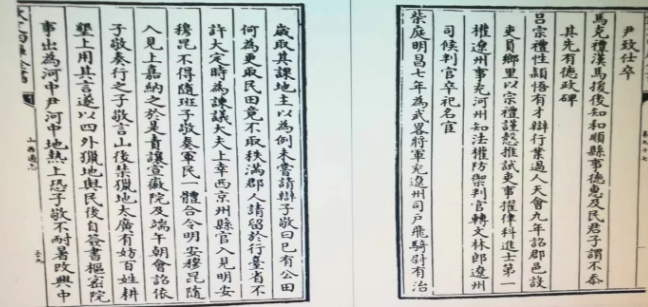 歲取其課地主以為例未嘗請辯子敬曰已有公田
何為更取民田竟不取秩滿郡人請留於行臺省不
許大定時為諫議大夫上幸西京州縣官入見明安
穆昆不得隨班子敬奏軍民一體合令明安穆昆隨
入見上嘉納之於是責讓宣徽院及端午朝會詔依
子敬奏行之子敬言山後禁獵地太廣有妨百姓耕
墾上用其言遂以四外獵地與民後自簽書樞密院
事出為河中尹河中地熱上恐子敬不耐暑改興中
山西通志
尹致仕卒
馬克禮漢馬援後知和順縣事德惠及民君子謂不忝
其先有德政碑
呂宗禮性穎悟有才辯行業過人天會九年詔郡邑設
吏員鄉里以宗禮謹愨推試吏事擢律科進士第一
權遼州事充河州知法權防禦判官轉文林郎遼州
司候判官卒祀名宦
榮庭明昌七年為武畧將軍充遼州司戶飛騎尉有治